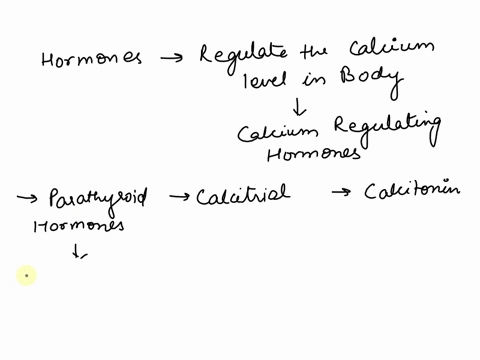 Hormones → Regulate the Calcium
level in Body
↓
Calcium Regulating
Hormones
→ Parathyroid → Calcitrial → Calcitonin
Hormones
↓